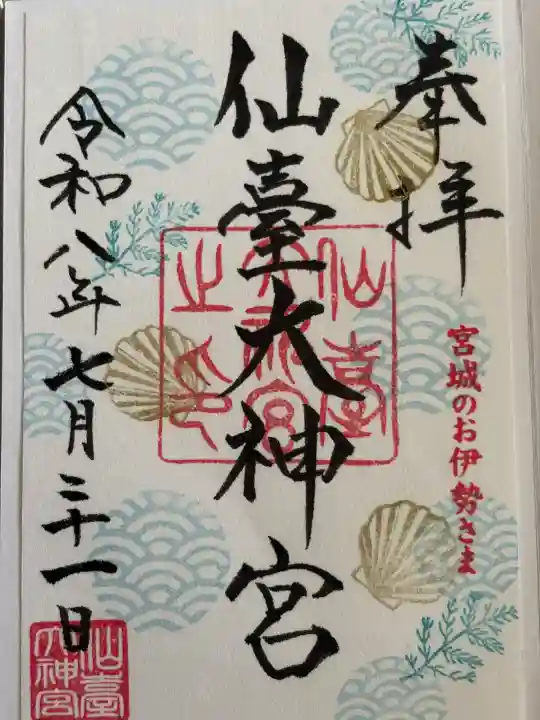 奉拝
宮城のお伊勢さま
仙臺大神宮
仙臺
大神宮
之印
令和八年七月三十一日
仙臺
大神宮